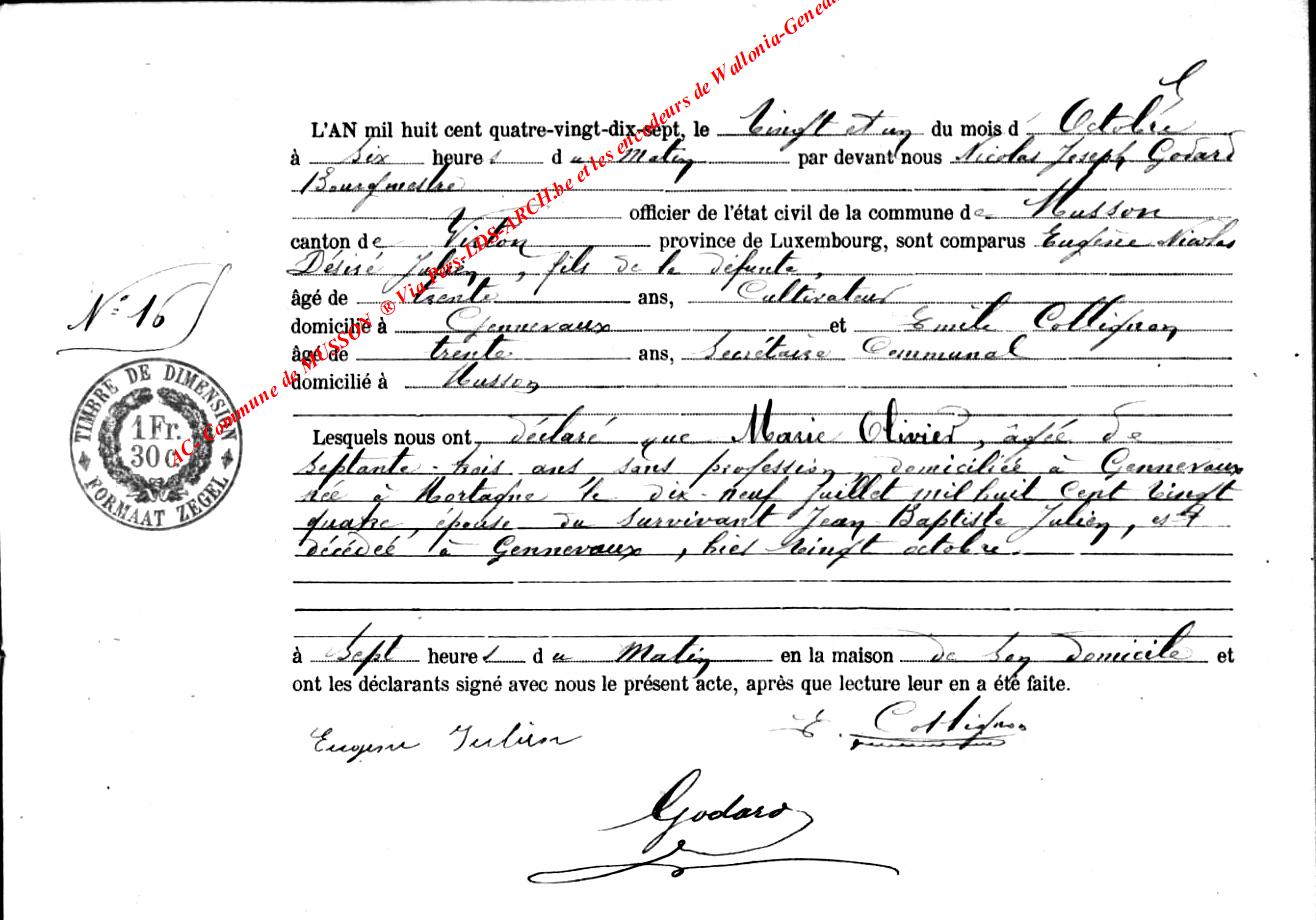 L'AN mil huit cent quatre-vingt-dix-sept, le Vingt et un du mois d' Octobre
à Six heures du Matin par devant nous Nicolas Joseph Godard
Bourgmestre
officier de l'état civil de la commune de Musson
canton de Virton province de Luxembourg, sont comparus Eugène Nicolas
Désiré Julien, fils de la défunte,
âgé de trente ans, Cultivateur
domicilié à Gennevaux et Emile Collignon
âgé de trente ans, Secrétaire Communal
domicilié à Musson
N° 16
TIMBRE DE DIMENSION
1 Fr.
30 C.
FORMAAT ZEGEL
Lesquels nous ont déclaré que Marie Olivier, âgée de
septante-trois ans sans profession, domiciliée à Gennevaux
née à Mortagne le dix-neuf Juillet mil huit cent vingt
quatre, épouse du survivant Jean Baptiste Julien, est
décédée à Gennevaux, hier vingt octobre.
à Sept heures du Matin en la maison de son domicile et
ont les déclarants signé avec nous le présent acte, après que lecture leur en a été faite.
Eugène Julien E. Collignon
Godard
AC: Commune de MUSSON ® Via Pers-LDS-ARCH.be et les encodeurs de Wallonia-Genea